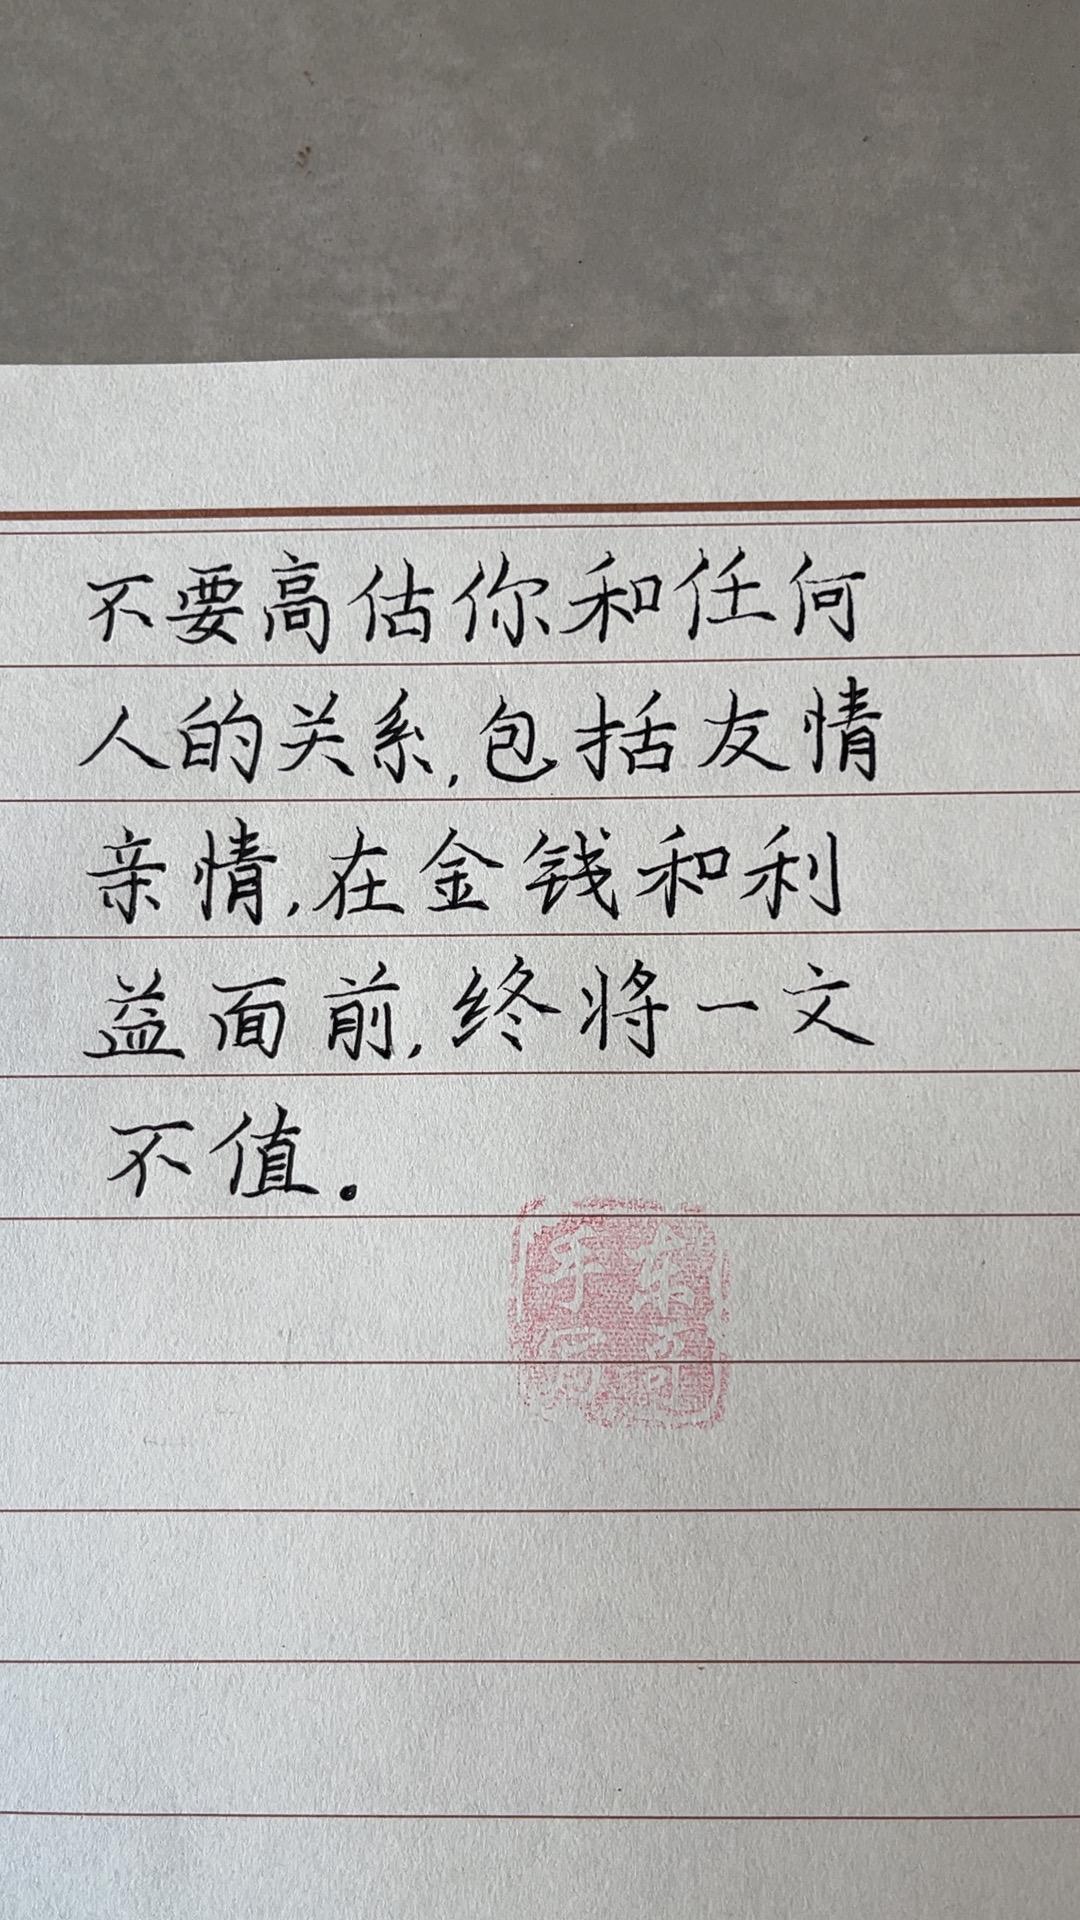 不要高估你和任何
人的关系,包括友情
亲情,在金钱和利
益面前,终将一文
不值。
东哥
手写